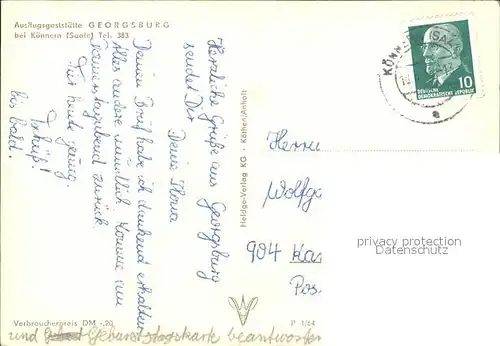 Ausflugsgaststätte GEORGSBURG
bei Könnern (Saale) Tel. 383
Herzliche Grüße aus Georgsburg
sendet Dir
Deine Ilona
Deinen Brief habe ich dankend erhalten
Alles andere mündlich komme am
Donnerstagabend zurück.
Für heute genug.
Tschüß!
bis bald.
und Geburtstagskarte beantworten
Verbraucherpreis DM -,20
Heldge-Verlag KG · Köthen/Anhalt
P 1/64
KÖNNERN (SAALE)
10
DEUTSCHE
DEMOKRATISCHE REPUBLIK
Herrn
Wolfg
904
Pos
privacy protection
Datenschutz